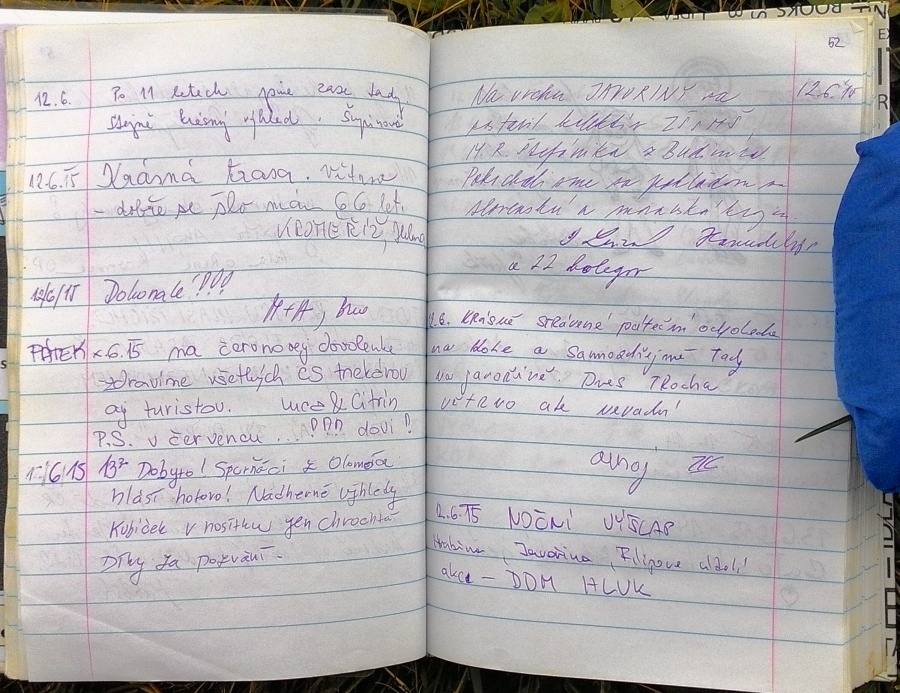 12.6. Po 11 letech jsme zase tady.
Stejně krásný výhled. Šupinová
12.6.15 Krásná trasa. Větrno
- dobře se šlo mám 66 let.
KROMĚŘÍŽ, Jelena
12/6/15 Dokonalé!!!
M+A, Brno
PÁTEK 6.15 na červnovej dovolenke
zdravíme všetkých ČS trekárov
aj turistov. Luca & Citrin
P.S. v červencu ... !PAA doví!
6/15 Dobyto! Sporťáci z Olomóca
hlásí hotovo! Nádherné výhledy
Kubíček v nosítku jen chrochtá
Díky za pozvání.
52
Na vrchu JAVORINY sa 12.6.15
postavil kolektív ZŠ s MŠ
M. R. Štefánika z
Pokochali sme sa pohľadom na
slovenské a moravské kraje.
a 22 kolegov
12.6. KRÁSNĚ STRÁVENÉ páteční odpoledne
na kole a samozřejmě tady
na javořině. Dnes TROCHA
VĚTRNO ale nevadí
ahoj
12.6.15 NOČNÍ VÝŠLAP
Javořina, Filipove údolí
akce - DDM HLUK